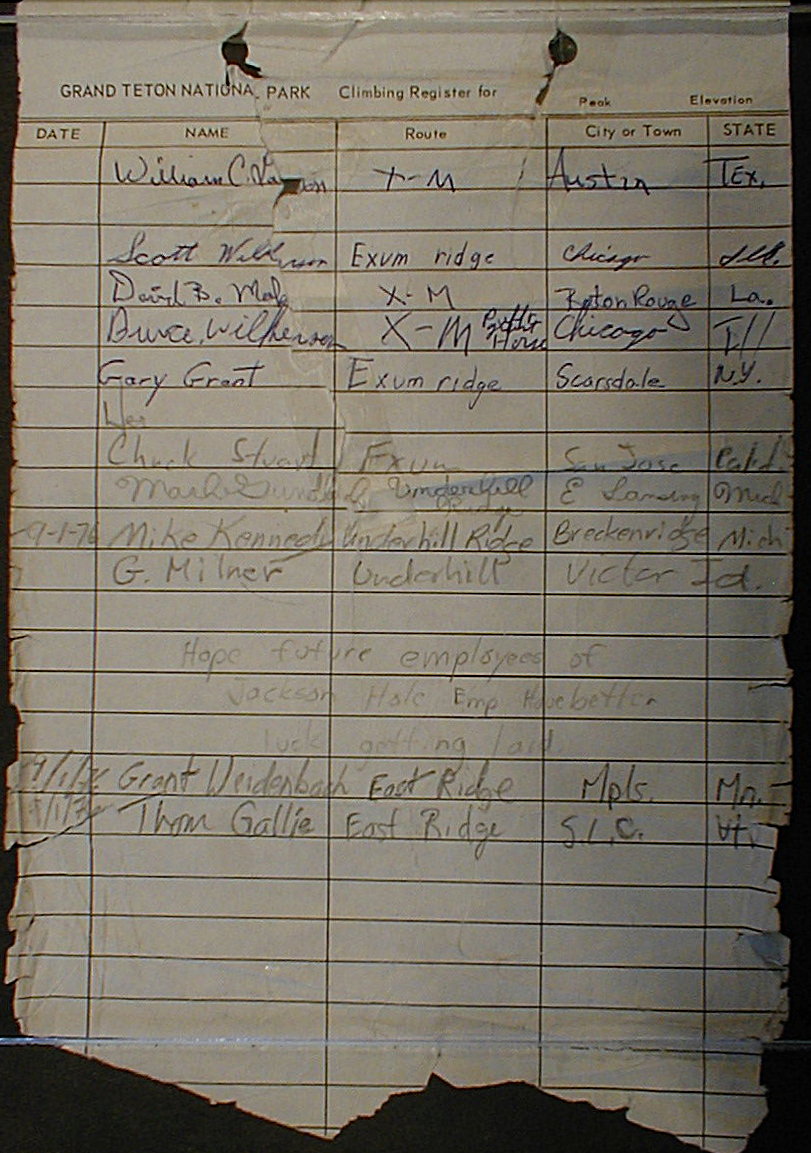 GRAND TETON NATIONAL PARK Climbing Register for Peak Elevation
DATE NAME Route City or Town STATE
William C. X-M Austin Tex.
Scott Wilkerson Exum ridge Chicago Ill.
David B. X-M Baton Rouge La.
Bruce Wilkerson X-M Chicago Ill
Gary Grant Exum ridge Scarsdale N.Y.
Chuck Stuart Exum San Jose Calif.
Mark Underhill E Lansing Mich
Ridge
9-1-76 Mike Kennedy Underhill Ridge Breckenridge Mich
G. Milner Underhill Victor Id.
Hope future employees of
Jackson Hole Emp Have better
luck getting laid
9/1/76 Grant Weidenbach East Ridge Mpls. Mn.
9/1/76 Thom Gallie East Ridge S.L.C. Ut.